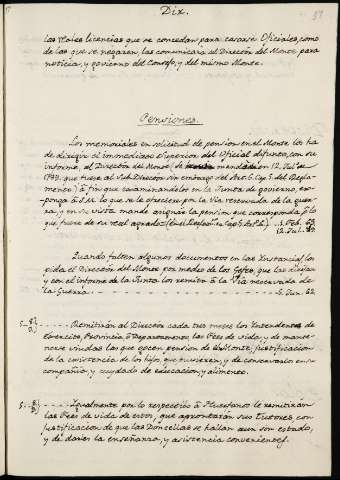 Dix. 37
las Reales licencias que se concedan para casarse Oficiales, como
de las que se negaren, las comunicará el Director del Monte para
noticia, y govierno del Consejo, y del mismo Monte.
Pensiones.
Los memoriales en solicitud de pension en el Monte los ha
de dirigir el inmediato Superior del Oficial difunto, con su
informe, al Director del Monte, de mandado en 12 Jul.º de
1799. que fuese al Sub Director sin embargo del Art.º 6. Cap. 3. del Regla-
mento) á fin que examinandolos en la Junta de govierno, ex-
ponga à S.M. lo que se le ofreciere por la Via reservada de la guer-
ra, y en su vista mande asignar la pension que corresponda, ó lo
que fuere de su real agrado.
12. Jul.
Quando falten algunos documentos en las Instancias, los
pida el Director del Monte por medio de los Gefes, que las dirijan
y con el informe de la Junta los remitirá à la Via reservada de
la Guerra. Jun. 62.
Remitirán al Director cada tres meses los Intendentes de
Exercito, Provincia, ó Departamento las Fees de vida, y de mante-
nerse viudas las que gocen pension del Monte, justificacion
de la existencia de los hijos, que tuvieren, y de conservarlos en su
compañia y cuydado de educacion, y alimento.
Igualmente por lo respectivo à Huerfanos le remitirán
las Fees de vida de estos, que aprontarán sus Tutores, con
justificacion de que las Doncellas se hallan aun sin estado,
y de darles la enseñanza, y asistencia convenientes.